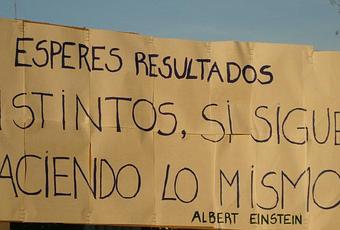 ESPERES RESULTADOS
ISTINTOS, SI SIGUE
ACIENDO LO MISMO
ALBERT EINSTEIN